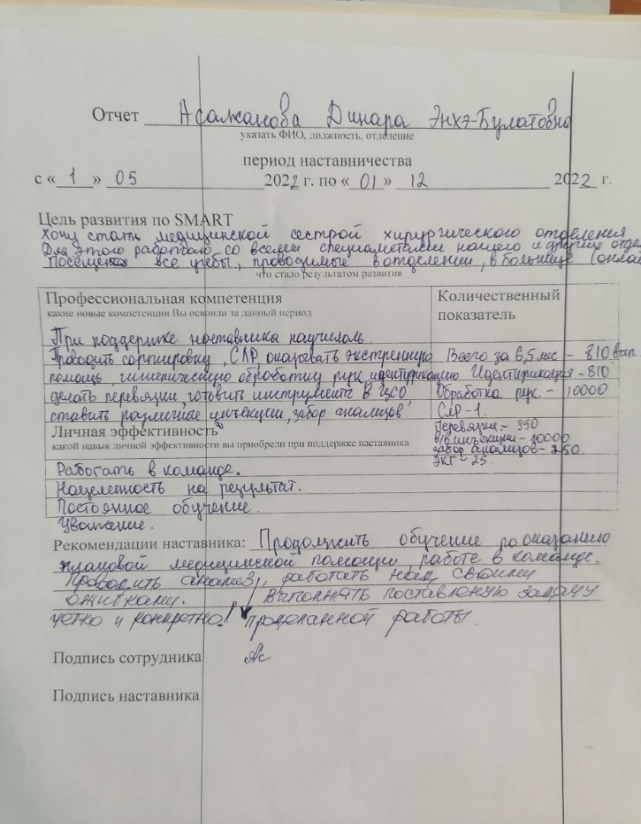 Отчет Асалханова Динара Энхэ-Булатовна
указать ФИО, должность, отделение
период наставничества
с « 1 » 05 2022 г. по « 01 » 12 2022 г.
Цель развития по SMART
Хочу стать медицинской сестрой хирургического отделения
Для этого работаю со всеми специалистами нашего и других отде
Посещаю все учебы, проводимые в отделении, в больнице (онлай
что стало результатом развития
Профессиональная компетенция
какие новые компетенции Вы освоили за данный период
Количественный показатель
При поддержке наставника научилась
Проводить сортировку, СЛР, оказывать экстренную Всего за 6,5 мес - 810
помощь, гигиеническую обработку рук, идентификацию Идентификация - 810
делать перевязки, готовить инструменты в ЦСО, Обработка рук - 10000
ставить различные инъекции, забор анализов СЛР - 1.
Личная эффективность
какой навык личной эффективности вы приобрели при поддержке наставника
Перевязки - 350
в/в инъекции - 10000
забор анализов - 250
ЭКГ - 25.
Работать в команде.
Нацеленность на результат.
Постоянное обучение.
Уважение.
Рекомендации наставника: Продолжить обучение по оказанию
плановой медицинской помощи, работе в команде.
Проводить анализ, работать над своими
ошибками. Выполнять поставленную задачу
четко и конкретно! проделанной работы.
Подпись сотрудника
Подпись наставника